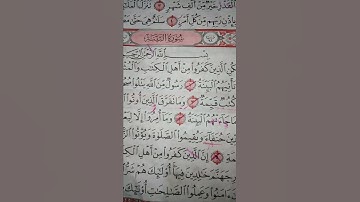 الْقَدْرِ خَيْرٌ مِّنْ أَلْفِ شَهْرٍ ٣ تَنَزَّلُ الْمَلَ
بِإِذْنِ رَبِّهِم مِّن كُلِّ أَمْرٍ ٤ سَلَٰمٌ هِيَ حَتَّىٰ
سُورَةُ الْبَيِّنَةِ
بِسْمِ اللَّهِ الرَّحْمَٰنِ الرَّحِيمِ
يَكُنِ الَّذِينَ كَفَرُوا مِنْ أَهْلِ الْكِتَٰبِ وَالْمُ
تَأْتِيَهُمُ الْبَيِّنَةُ ١ رَسُولٌ مِّنَ اللَّهِ يَتْلُوا
كُتُبٌ قَيِّمَةٌ ٣ وَمَا تَفَرَّقَ الَّذِينَ أُوتُوا
مَا جَاءَتْهُمُ الْبَيِّنَةُ ٤ وَمَا أُمِرُوا إِلَّا لِيَعْ
حُنَفَاءَ وَيُقِيمُوا الصَّلَوٰةَ وَيُؤْتُوا
٥ إِنَّ الَّذِينَ كَفَرُوا مِنْ أَهْلِ الْكِ
جَهَنَّمَ خَٰلِدِينَ فِيهَا أُولَٰئِكَ هُمْ شَرُّ
ءَامَنُوا وَعَمِلُوا الصَّٰلِحَٰتِ أُولَٰئِكَ